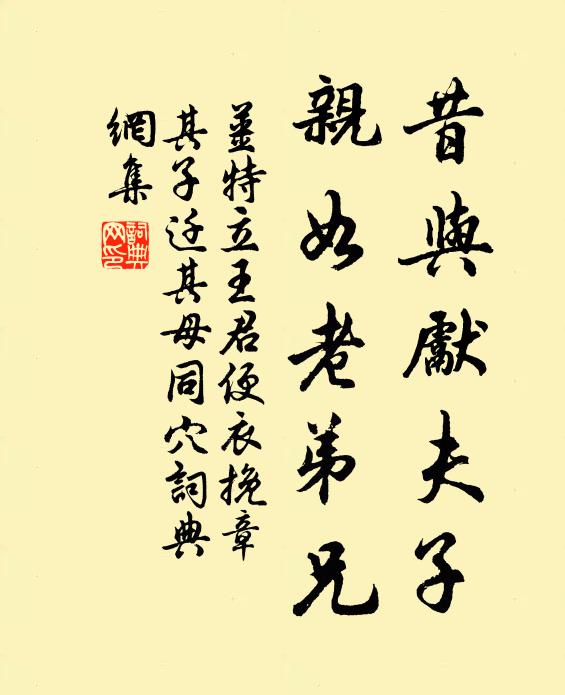 昔與獻夫子
親如老弟兄
姜特立王君便衣挽章
其子迁其母同穴詞典
網集
詞典網印